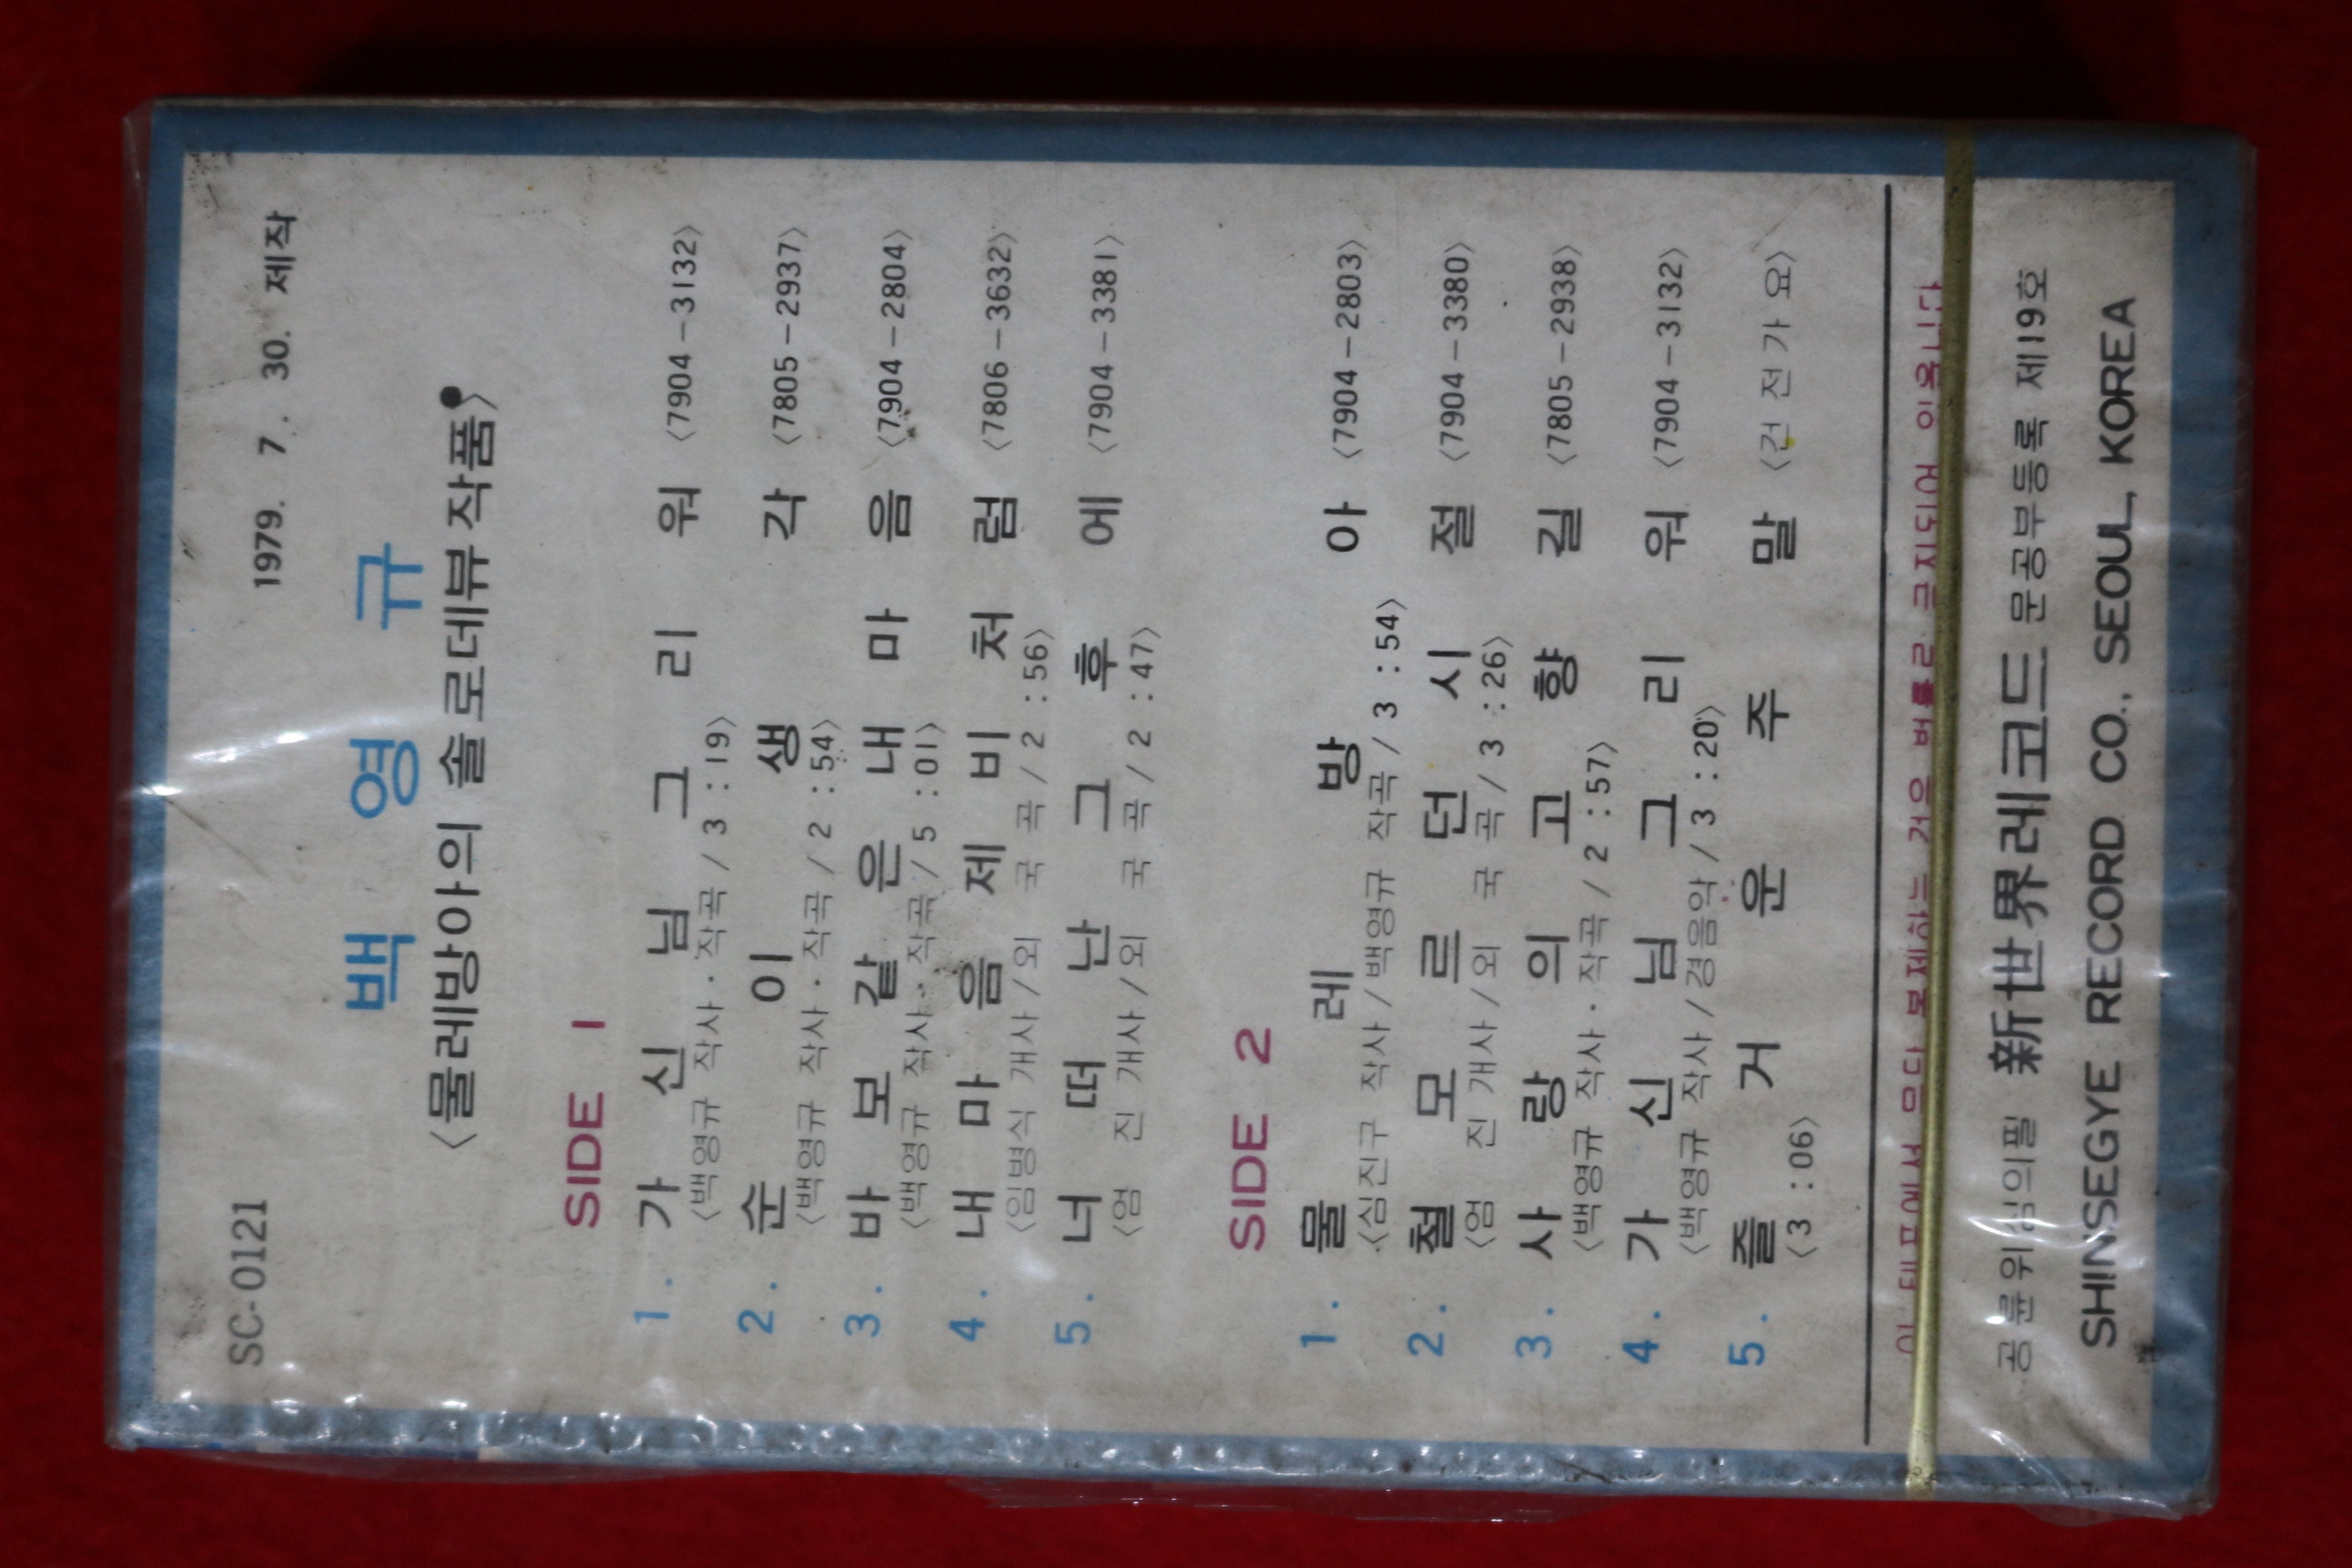 SC-0121
1979. 7. 30. 제작
백 영 규
〈물레방아의 솔로데뷰작품〉
SIDE 1
1. 가 신 님 그 리 워 〈7904-3132〉
〈백영규 작사·작곡/3:19〉
2. 순 이 생 각 〈7805-2937〉
〈백영규 작사·작곡/2:54〉
3. 바 보 같 은 내 마 음 〈7904-2804〉
〈백영규 작사·작곡/5:01〉
4. 내 마 음 제 비 처 럼 〈7806-3632〉
〈임병식 개사/외 국 곡/2:56〉
5. 너 떠 난 그 후 에 〈7904-3381〉
〈엄 진 개사/외 국 곡/2:47〉
SIDE 2
1. 물 레 방 아 〈7904-2803〉
〈심진구 작사/백영규 작곡/3:54〉
2. 철 모 르 던 시 절 〈7904-3380〉
〈엄 진 개사/외 국 곡/3:26〉
3. 사 랑 의 고 향 길 〈7805-2938〉
〈백영규 작사·작곡/2:57〉
4. 가 신 님 그 리 워 〈7904-3132〉
〈백영규 작사/경음악/3:20〉
5. 즐 거 운 주 말 〈건 전 가 요〉
〈3:06〉
이 테프에서 복제하는 것을 법률로 금지되어 있읍니다
공륜위심의필 新世界레코드 문공부등록 제19호
SHINSEGYE RECORD CO., SEOUL, KOREA